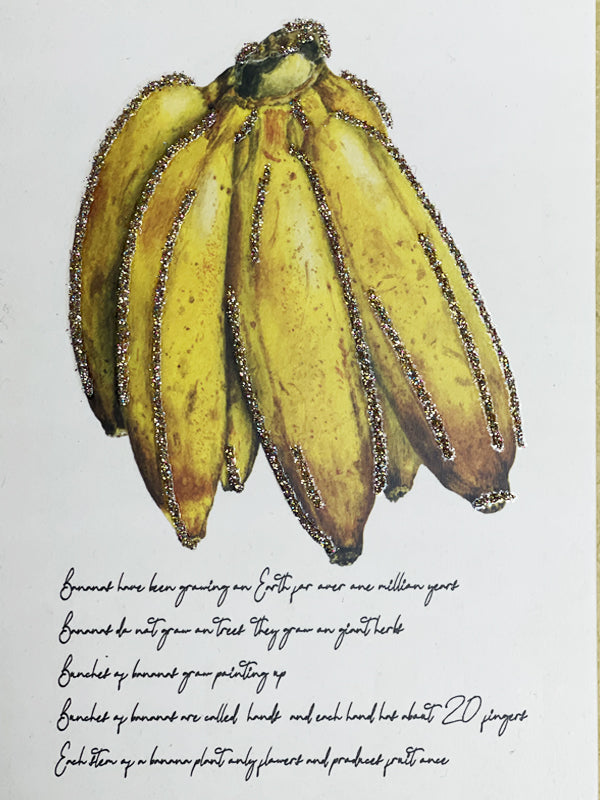 Bananas have been growing on Earth for over one million years
Bananas do not grow on trees they grow on giant herbs
Bunches of bananas grow pointing up
Bunches of bananas are called hands and each hand has about 20 fingers
Each stem of a banana plant only flowers and produces fruit once